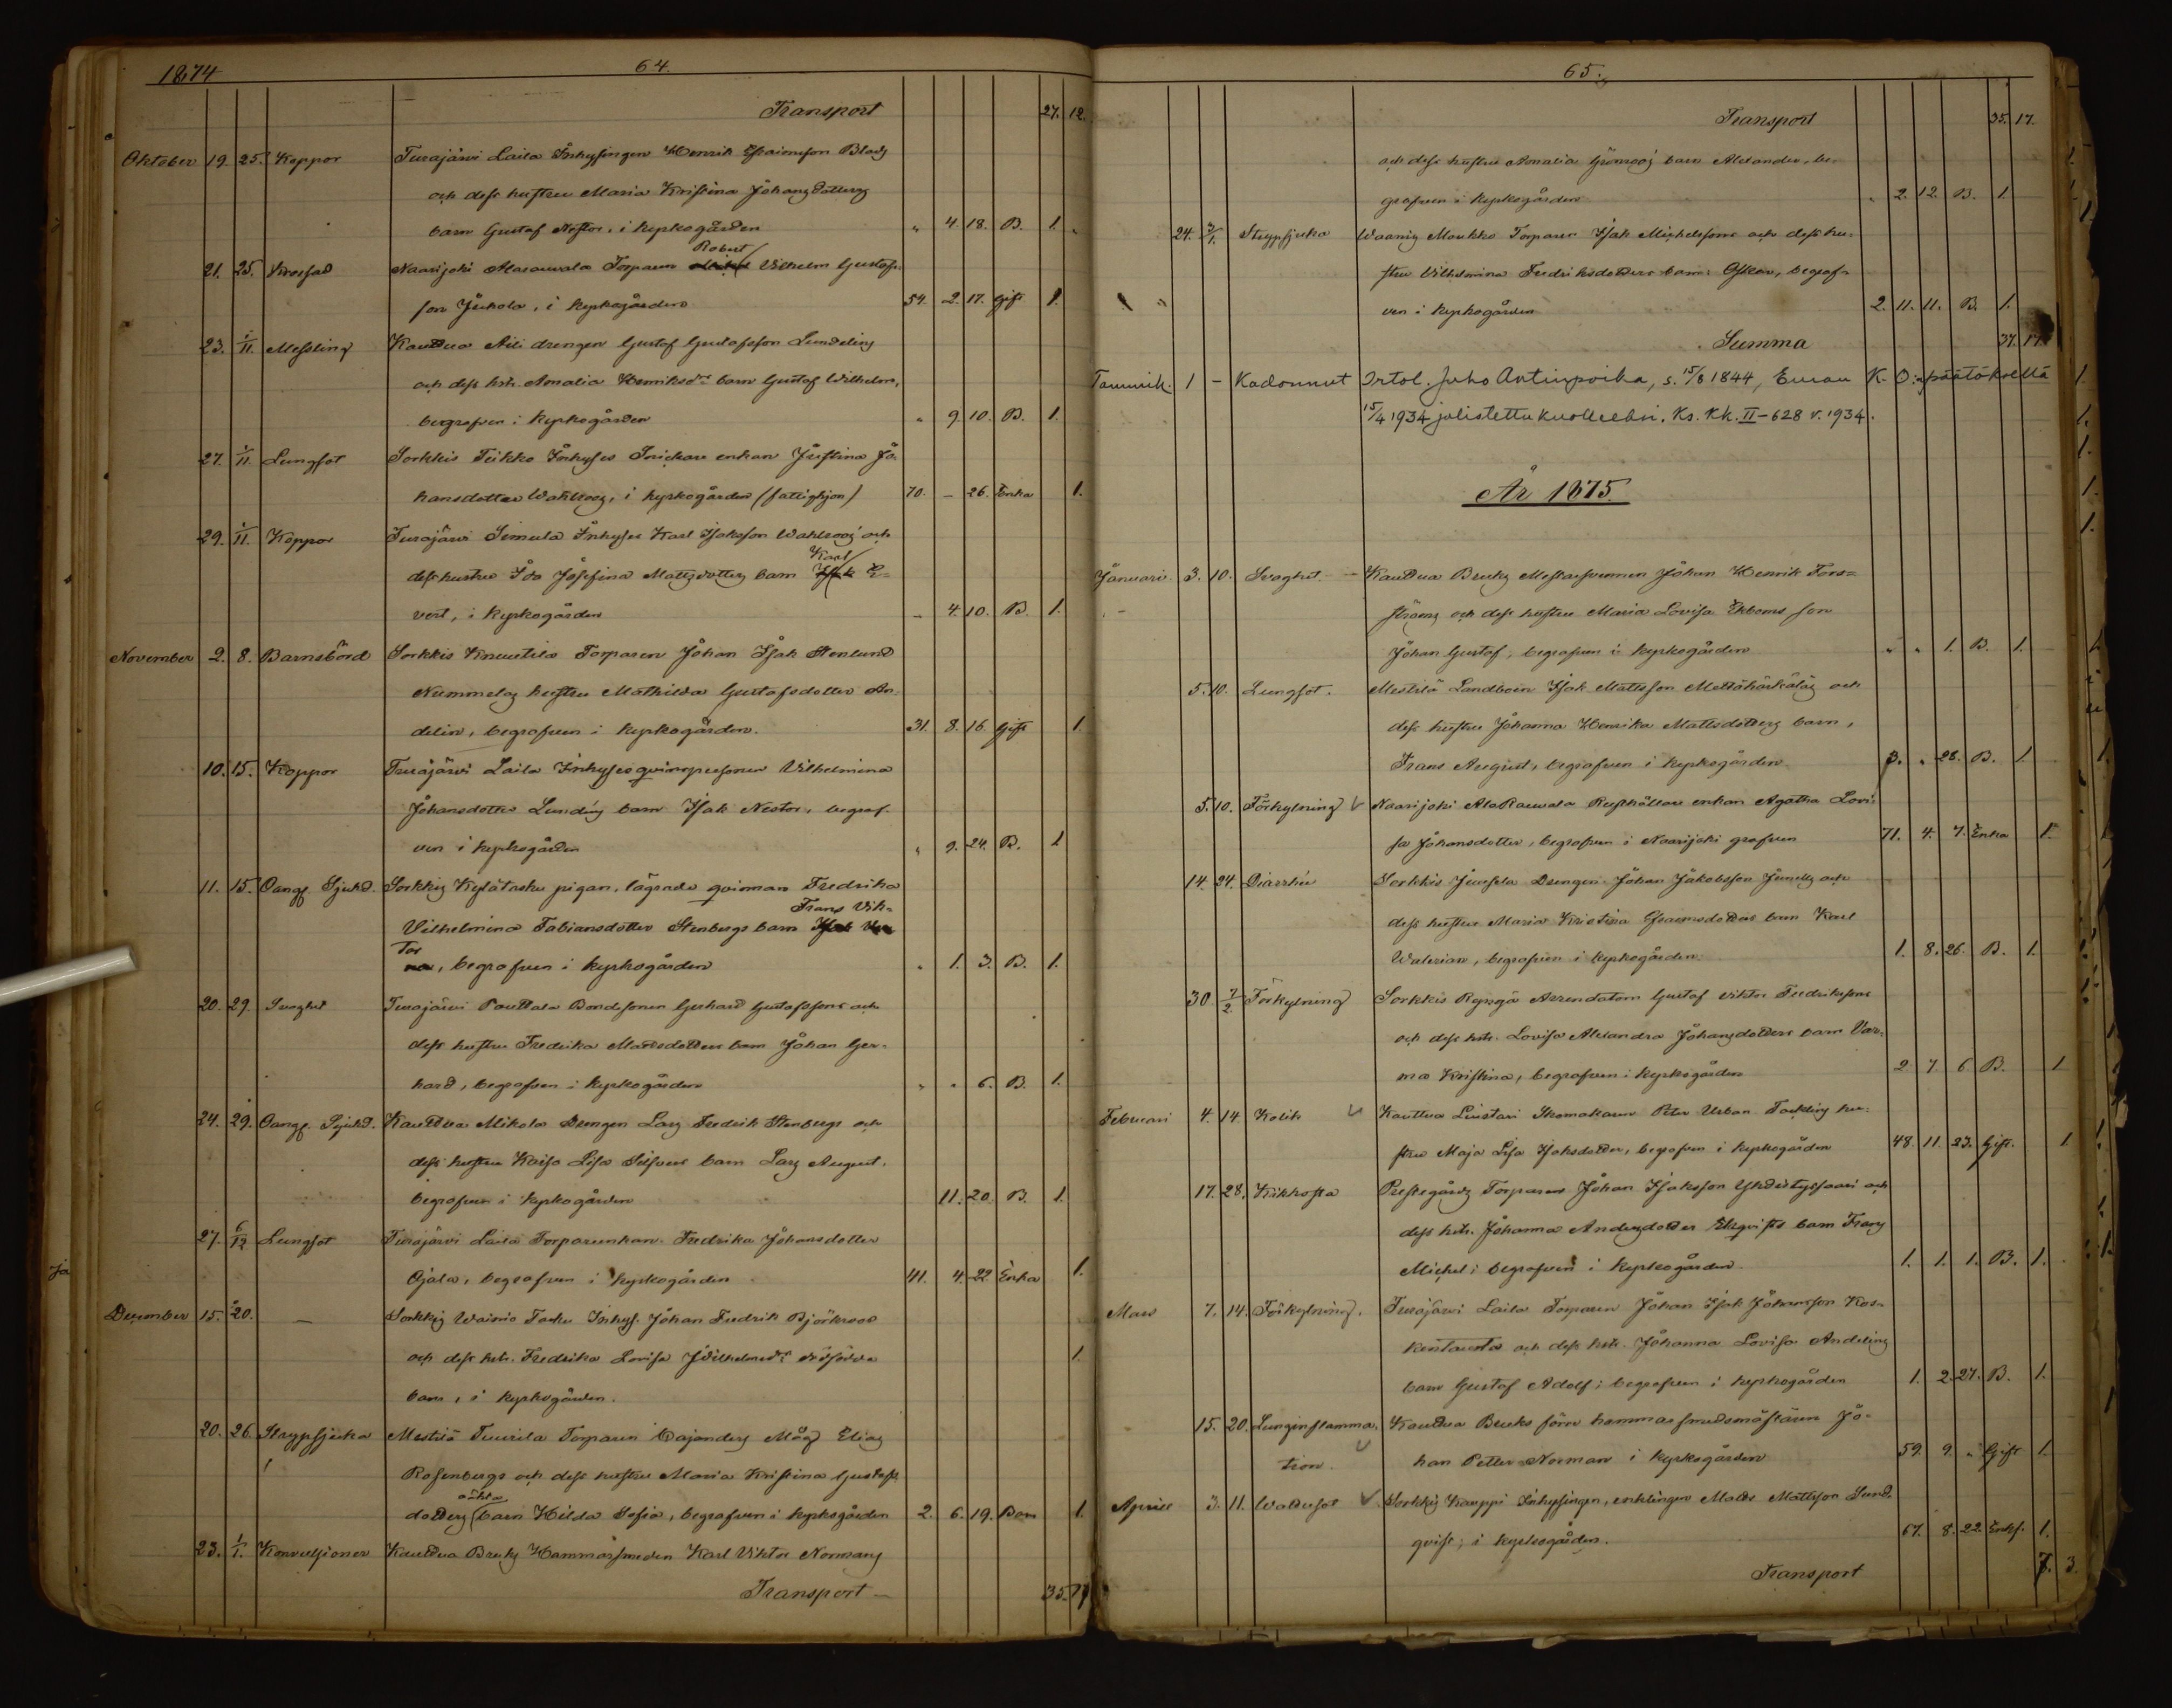 1874
64.
Transport 27. 12.
Oktober 19. 25. Koppor Turajärvi Laila Inhysingen Henrik Efraimsson Blads
och dess hustru Maria Kristina Johansdotters
barn Gustaf Nestor, i kyrkogården " 4. 18. B. 1.
21. 25. Krossad Naarijoki Alarauvala Torparen Robert Vilhelm Gustafs-
son Jukola, i kyrkogården 54. 2. 17. Gift 1.
23. 1/11. Messling Kauttua Aili drengen Gustaf Gustafsson Lundelins
och dess hstr. Amalia Henriksdrs barn Gustaf Wilhelm,
begrafven i kyrkogården " 9. 10. B. 1.
27. 1/11. Lungsot Sorkkis Teikko Inhyses Snickare enkan Justina Jo-
hansdotter Wahlroos, i kyrkogården (fattighjon) 70. - 26. Enka 1.
29. 1/11. Koppor Turajärvi Simula Inhyses Karl Isaksson Wahlroos och
dess hustru Ida Josefina Mattsdotters barn Karl E-
vert, i kyrkogården - 4. 10. B. 1.
November 2. 8. Barnsbörd Sorkkis Knuutila Torparen Johan Isak Stenlund
Nummelas hustru Mathilda Gustafsdotter An-
delin, begrafven i kyrkogården. 31. 8. 16. Gift 1.
10. 15. Koppor Turajärvi Laila Inhyses qvinspersonen Vilhelmina
Johansdotter Lundins barn Isak Nestor, begraf-
ven i kyrkogården " 9. 24. B. 1
11. 15. Oangf. Sjukd. Sorkkis Kylätasku pigan, lägrade qvinnan Fredrika
Vilhelmina Fabiansdotter Stenbergs barn Frans Vik-
tor, begrafven i kyrkogården " 1. 3. B. 1.
20. 29. Svaghet Turajärvi Pouttala Bondesonen Gerhard Gustafssons och
dess hustru Fredrika Mattsdotters barn Johan Ger-
hard, begrafven i kyrkogården " " 6. B. 1.
24. 29. Oangf. Sjukd. Kauttua Mikola Drengen Lars Fredrik Stenbergs och
dess hustru Kaisa Lisa Silfvers barn Lars August,
begrafven i kyrkogården 11. 20. B. 1.
27. 6/12 Lungsot Turajärvi Laila Torparenkan Fredrika Johansdotter
Ojala, begrafven i kyrkogården 41. 4. 22 Enka 1.
December 15. 20. — Sorkkis Wainio Tasku Inhys. Johan Fredrik Björkroos
och dess hstr. Fredrika Lovisa Wilhelmsdrs dödfödda 1.
barn, i kyrkogården.
20. 26. Strypsjuka Mestilä Tuurila Torparen Cajanders Måg Elias
Rosenbergs och dess hustru Maria Kristina Gustafs-
dotters äkta barn Hilda Sofia, begrafven i kyrkogården 2. 6. 19. Barn 1.
23. 1/1. Konvulsioner Kauttua Bruks Hammarsmeden Karl Viktor Normans
Transport — 35. 17
65.
Transport 35. 17.
och dess hustru Amalia Grönroos barn Alexander, be-
grafven i kyrkogården " 2. 12. B. 1.
24. 3/1. Strypsjuka Waanis Moukko Torparen Isak Michelssons och dess hu-
stru Vilhelmina Fredriksdotters barn Oskar, begraf-
ven i kyrkogården 2. 11. 11. B. 1.
Summa 37. 17.
Tammik. 1 - Kadonnut Irtol. Juho Antinpoika, s. 15/8 1844, Euran K.O:n päätöksellä
15/4 1934 julistettu kuolleeksi. Ks. Kk. II-628 v. 1934.
År 1875.
Januari. 3. 10. Svaghet. Kauttua Bruks Mestaresvennen Johan Henrik Fors-
ströms och dess hustru Maria Lovisa Ekboms son
Johan Gustaf, begrafven i kyrkogården " " 1. B. 1.
5. 10. Lungsot. Mestilä Landboen Isak Mattsson Mettähärkäläs och
dess hustru Johanna Henrika Mattsdotters barn,
Frans August, begrafven i kyrkogården. 3. " 28. B. 1.
5. 10. Förkylning Naarijoki AlaRauvala Rusthållare enkan Agatha Lovi-
sa Johansdotter, begrafven i Naarijoki grafven 71. 4. 7. Enka 1.
14. 24. Diarrhé Sorkkis Juusela Drengen Johan Jakobsson Junells och
dess hustru Maria Kristina Efraimsdotters barn Karl
Walerian, begrafven i kyrkogården. 1. 8. 26. B. 1.
30 7/2 Förkylning Sorkkis Ryngä Arrendatorn Gustaf Viktor Fredrikssons
och dess hstr. Lovisa Alexandra Johansdotters barn Var-
ma Kristina, begrafven i kyrkogården 2 7 6. B. 1
Februari 4. 14. Kolik Kauttua Luistari Skomakaren Peter Urban Tackling hu-
stru Maja Lisa Isaksdotter, begrafven i kyrkogården 48. 11. 23. Gift. 1
17. 28. Kikhosta Prestegårds Torparens Johan Isaksson Yhdistyssaari och
dess hstr. Johanna Andersdotter Ekqvists barn Frans
Michel; begrafven i kyrkogården. 1. 1. 1. B. 1.
Mars 7. 14. Förkylning. Turajärvi Laila Torparen Johan Isak Johansson Kos-
kentausta och dess hstr. Johanna Lovisa Andelins
barn Gustaf Adolf; begrafven i kyrkogården 1. 2. 27. B. 1.
15. 20. Lunginflamma- Kauttua Bruks förre hammarsmedsmästaren Jo-
tion. han Petter Norman i kyrkogården 59. 9. " Gift 1.
April 3. 11. Wattusot Sorkkis Kauppi Inhysingen, enklingen Matts Mattsson Sund-
qvist; i kyrkogården. 67. 8. 22. Enkl. 1.
Transport 7. 3.